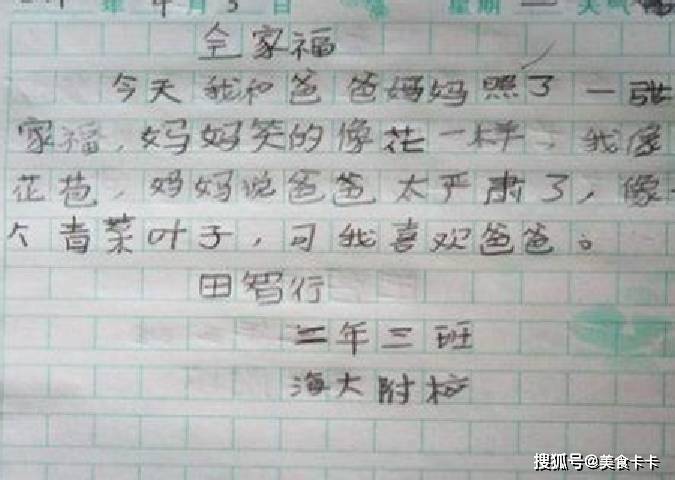 年 4月3日 星期一 天气
全家福
今天我和爸爸妈妈照了一张
家福,妈妈笑的像花一样,我像
花苞,妈妈说爸爸太严肃了,像
个青菜叶子,可我喜欢爸爸。
田智行
二年三班
海大附校
搜狐号@美食卡卡